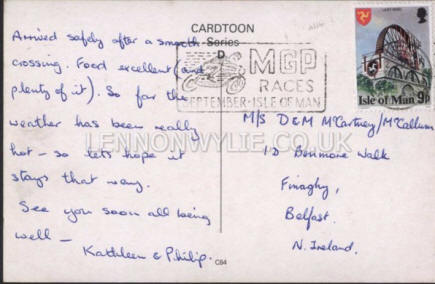 CARDTOON
Series
D
Arrived safely after a smooth
crossing. Food excellent (and
plenty of it). So far the
weather has been really
hot - so lets hope it
stays that way.
See you soon all being
well -
Kathleen & Philip.
C84
MGP
RACES
SEPTEMBER - ISLE OF MAN
Isle of Man 9p
M/s D&M McCartney/McCallum
1D Benmore Walk
Finaghy,
Belfast.
N. Ireland.
LENNONWYLIE.CO.UK